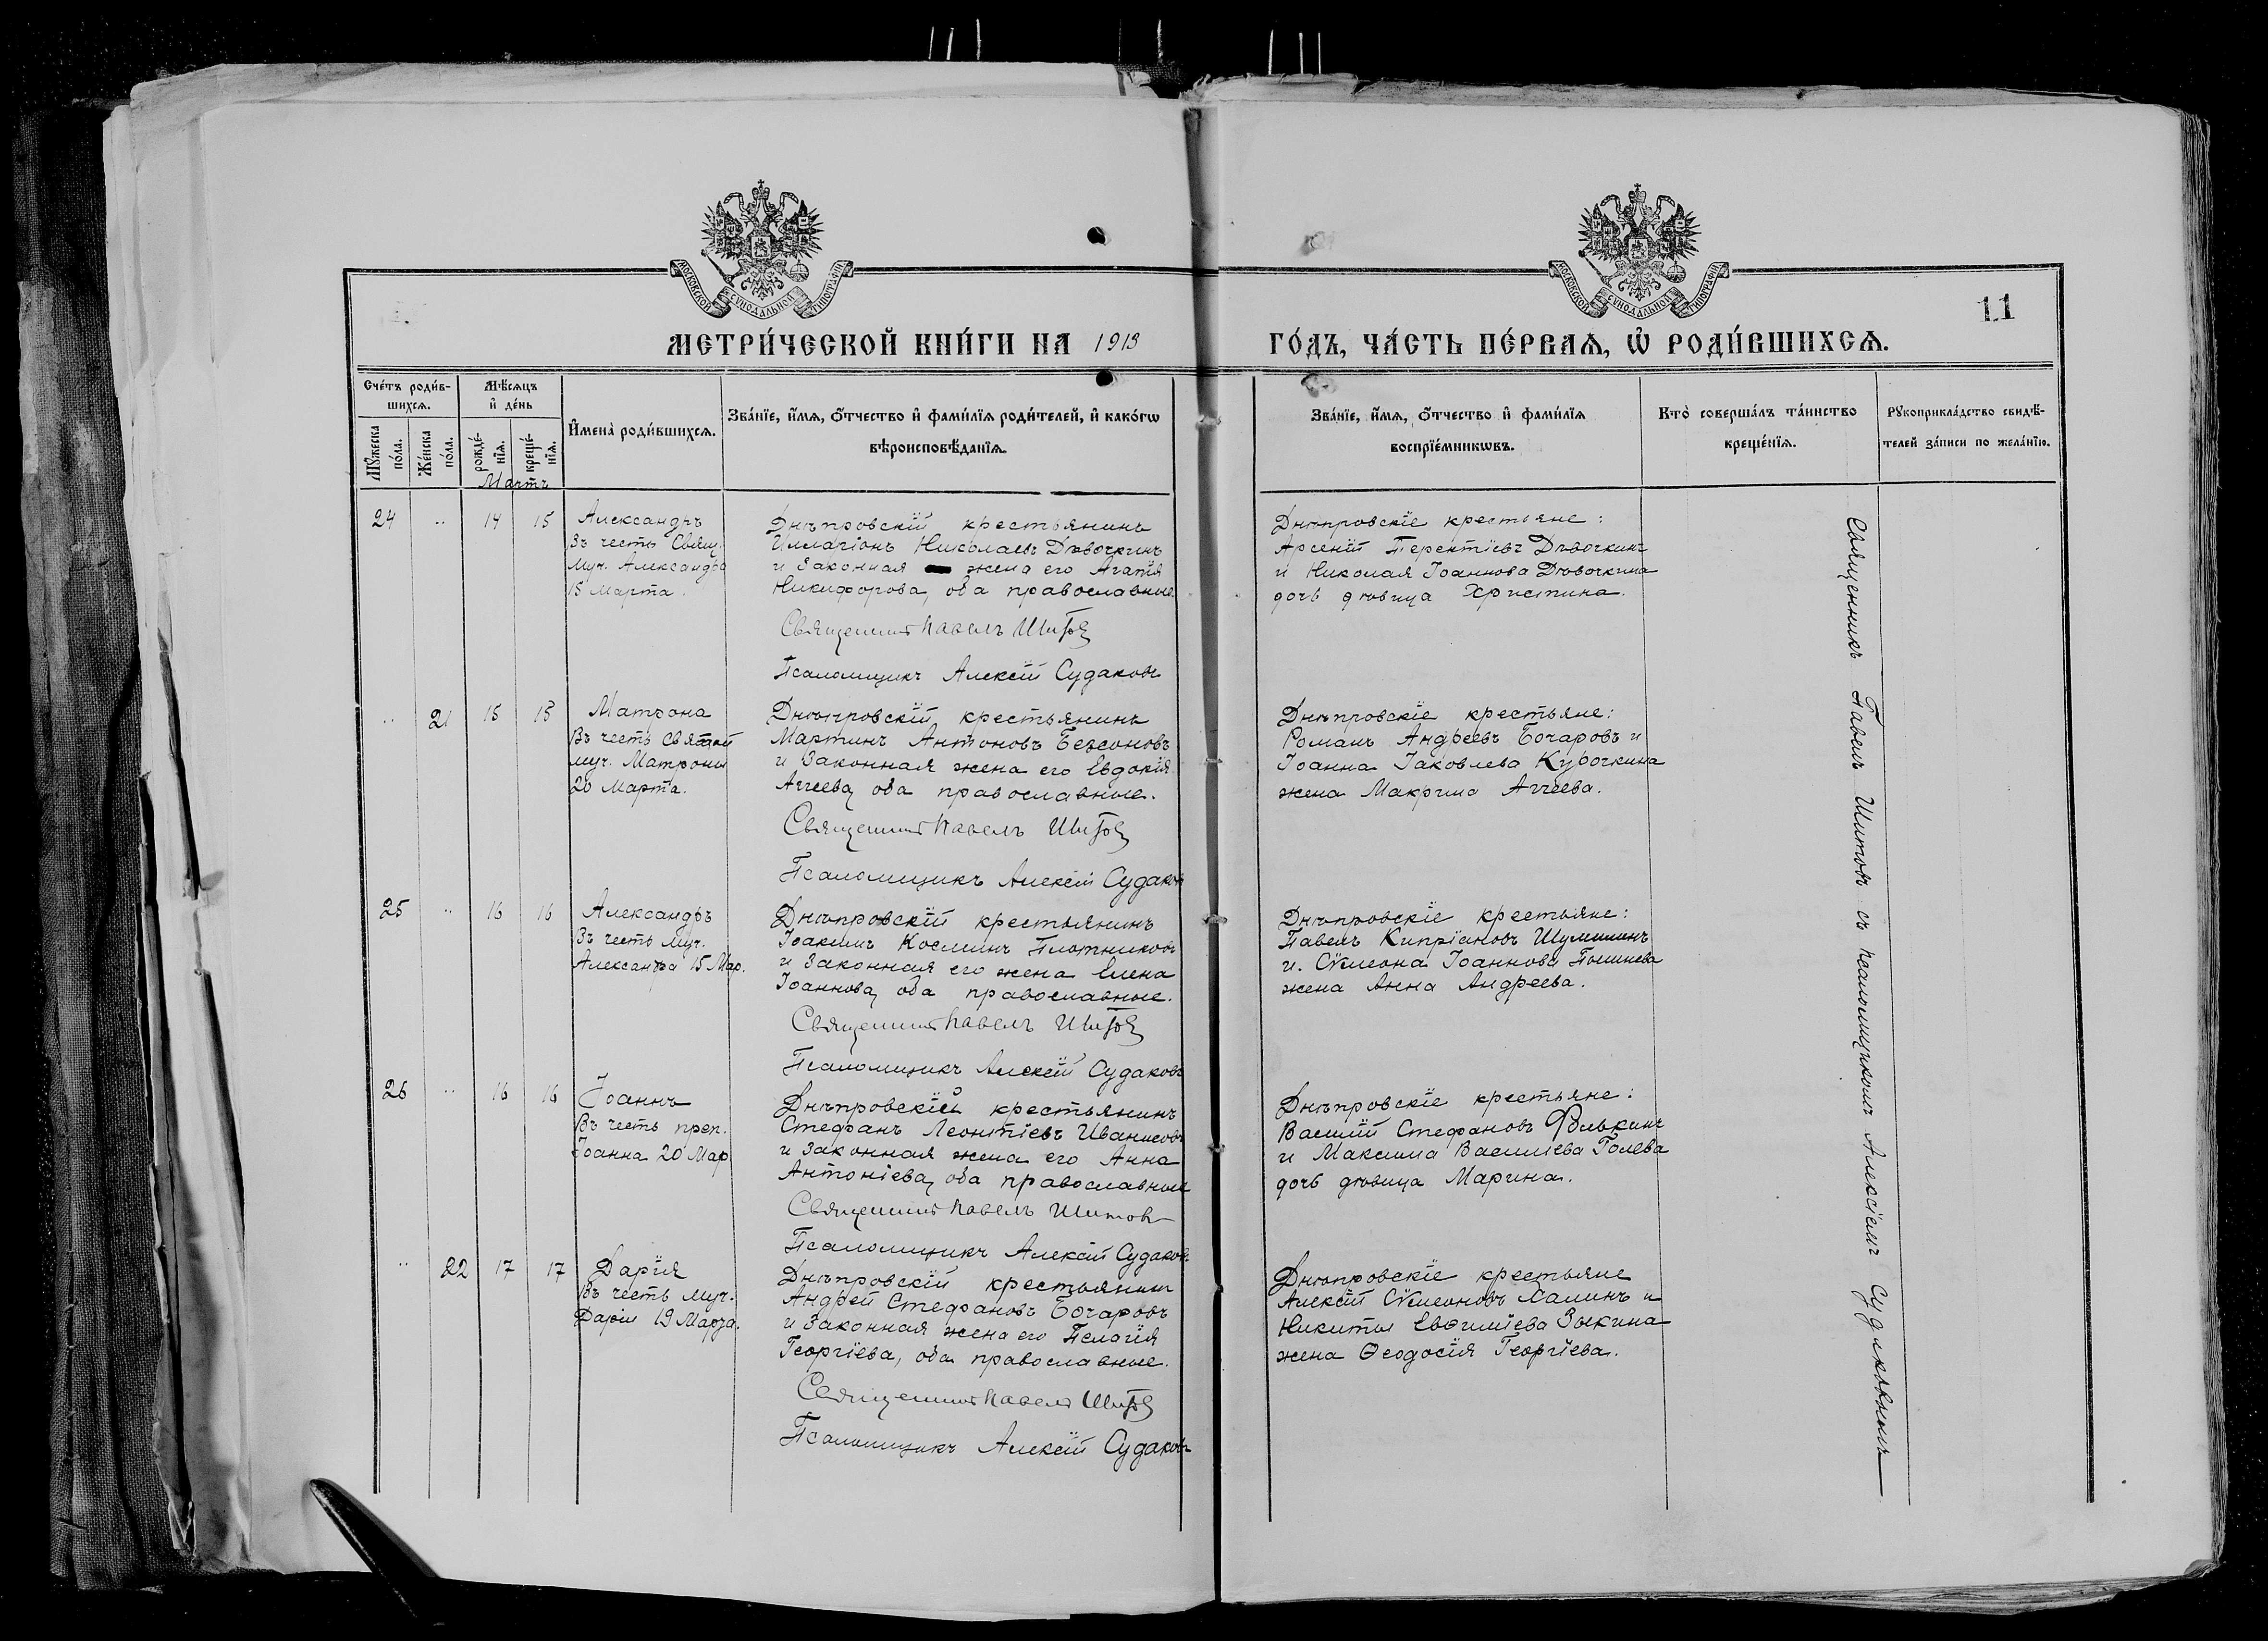 МОСКОВСКОЙ СѴНОДАЛЬНОЙ ТИПОГРАФІИ
МОСКОВСКОЙ СѴНОДАЛЬНОЙ ТИПОГРАФІИ
11
МЕТРИ́ЧЕСКОЙ КНИ́ГИ НА 1913
ГО́ДЪ, ЧА́СТЬ ПЕ́РВАѦ, Ѡ҆ РОДИ́ВШИХСѦ.
Сче́тъ роди́в-
шихсѧ.
Мѣ́сѧцъ
и҆ де́нь
Мꙋ́жеска
по́ла.
Же́нска
по́ла.
рожде́-
нїѧ.
креще́-
нїѧ.
И҆мена̀ роди́вшихсѧ.
Зва́нїе, и҆́мѧ, ѻ҆́тчество и҆ фами́лїѧ роди́телей, и҆ како́гѡ
вѣроисповѣ́данїѧ.
Зва́нїе, и҆́мѧ, ѻ҆́тчество и҆ фами́лїѧ
воспрїе́мникѡвъ.
Кто̀ соверша́лъ та́инство
креще́нїѧ.
Рꙋкоприкла́дство свидѣ́-
телей за́писи по жела́нїю.
Мартъ
24 .. 14 15 Александръ
Въ честь Свящ.
муч. Александра
15 Марта.
Днѣпровскій крестьянинъ
Илларіонъ Николаевъ Дѣвочкинъ
и законная жена его Агапія
Никифорова, оба православные.
Священникъ Павелъ Шитовъ
Псаломщикъ Алексій Судаковъ
Днѣпровскіе крестьяне:
Арсеній Терентіевъ Дѣвочкинъ
и Николая Іоаннова Дѣвочкина
дочь дѣвица Христина.
.. 21 15 15 Матрона
Въ честь святой
муч. Матроны
20 Марта.
Днѣпровскій крестьянинъ
Мартинъ Антоновъ Безсоновъ
и законная жена его Евдокія
Аггеева, оба православные.
Священникъ Павелъ Шитовъ
Псаломщикъ Алексій Судаковъ
Днѣпровскіе крестьяне:
Романъ Андреевъ Бочаровъ и
Іоанна Іаковлева Курочкина
жена Макрина Аггеева.
25 .. 16 16 Александръ
Въ честь муч.
Александра 15 Мар.
Днѣпровскій крестьянинъ
Іоакимъ Косминъ Плотниковъ
и законная его жена Елена
Іоаннова, оба православные.
Священникъ Павелъ Шитовъ
Псаломщикъ Алексій Судаковъ
Днѣпровскіе крестьяне:
Павелъ Кипріановъ
и. Сѵмеона Іоаннова
жена Анна Андреева.
26 .. 16 16 Іоаннъ
Въ честь преп.
Іоанна 20 Мар.
Днѣпровскій крестьянинъ
Стефанъ Леонтіевъ
и законная жена его Анна
Антоніева, оба православные
Священникъ Павелъ Шитовъ
Псаломщикъ Алексій Судаковъ.
Днѣпровскіе крестьяне:
Василій Стефановъ Филькинъ
и Максима Василіева Голева
дочь дѣвица Марина.
.. 22 17 17 Дарія
Въ честь муч.
Даріи 19 Марта.
Днѣпровскій крестьянинъ
Андрей Стефановъ Бочаровъ
и законная жена его Пелагія
Георгіева, оба православные.
Священникъ Павелъ Шитовъ
Псаломщикъ Алексій Судаковъ
Днѣпровскіе крестьяне
Алексій Сѵмеоновъ Халинъ и
Никиты Евѳиміева Зыкина
жена Ѳеодосія Георгіева.
Священникъ Павелъ Шитовъ съ псаломщикомъ Алексіемъ Судаковымъ